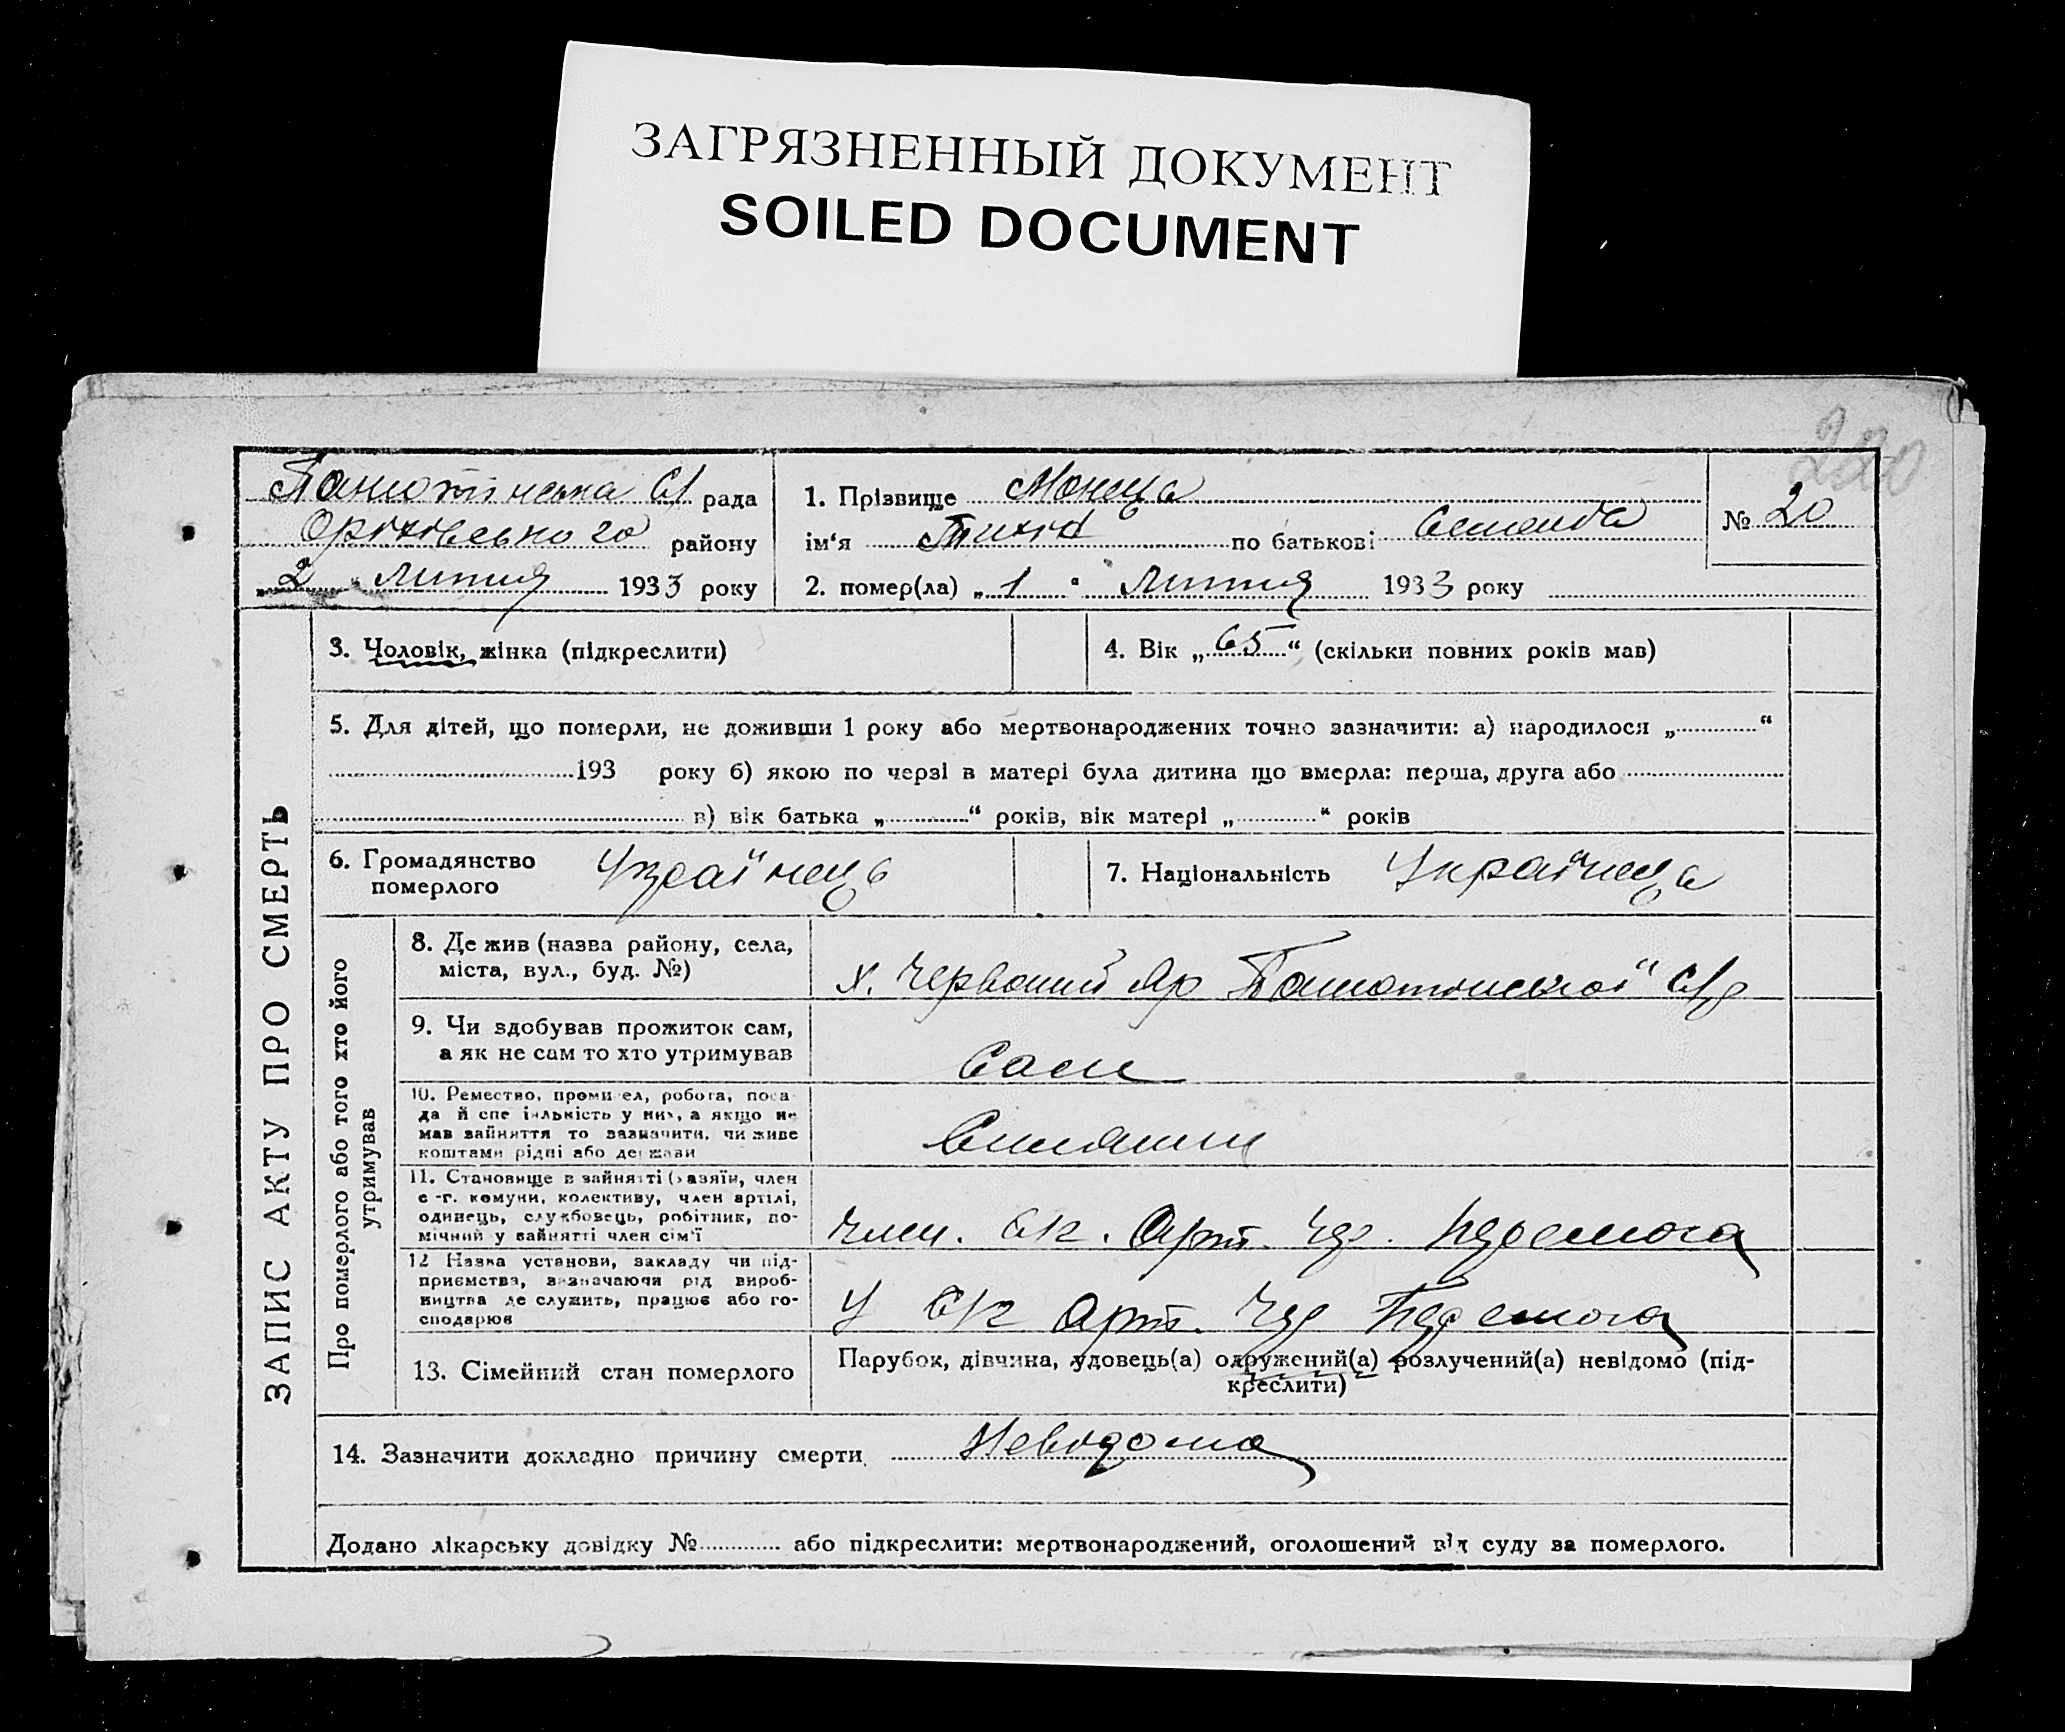 ЗАГРЯЗНЕННЫЙ ДОКУМЕНТ
SOILED DOCUMENT
220
Панютінська С/ рада
Оріхівського району
„2“ Липня 1933 року
1. Прізвище
ім‘я Тихін по батькові
2. помер(ла) „1“ Липня 1933 року
№ 20
ЗАПИС АКТУ ПРО СМЕРТЬ
3. Чоловік, жінка (підкреслити)
4. Вік „65“ (скільки повних років мав)
5. Для дітей, що померли, не доживши 1 року або мертвонароджених точно зазначити: а) народилося „ “
193 року б) якою по черзі в матері була дитина що вмерла: перша, друга або
в) вік батька „ “ років, вік матері „ “ років
6. Громадянство
померлого
Українець
7. Національність Українець
Про померлого або того хто його
утримував
8. Де жив (назва району, села,
міста, вул., буд. №)
х. Червоний Яр С/р
9. Чи здобував прожиток сам,
а як не сам то хто утримував
Сам
10. Ремество, промисел, робота, поса-
да й спеціяльність у них, а якщо не
мав зайняття то зазначити, чи живе
коштами рідні або держави
11. Становище в зайнятті (хазяїн, член
с.-г. комуни, колективу, член артілі,
одинець, службовець, робітник, по-
мічний у зайнятті член сім‘ї
Член. Арт. Чер. Перемога
12 Назва установи, закладу чи під-
приємства, зазначаючи рід вироб-
ництва де служить, працює або го-
сподарює
У Арт. Чер Перемога
13. Сімейний стан померлого
Парубок, дівчина, удовець(а) одружений(а) розлучений(а) невідомо (під-
креслити)
14. Зазначити докладно причину смерти Невідома
Додано лікарську довідку № або підкреслити: мертвонароджений, оголошений від суду за померлого.